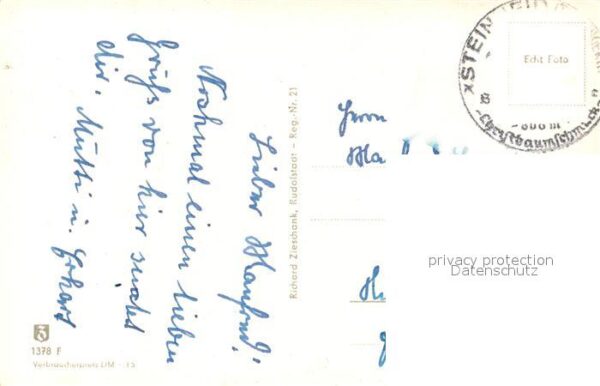 Lieber Manfred!
Nochmal einen lieben
Gruß von hier sendet
dir, Mutti u. Erhard
Richard Zieschank, Rudolstadt – Reg.-Nr. 21
1378 F
Verbraucherpreis DM –.15
Echt Foto
STEINHEID
800 m
Christbaumschmuck
Herrn
privacy protection
Datenschutz